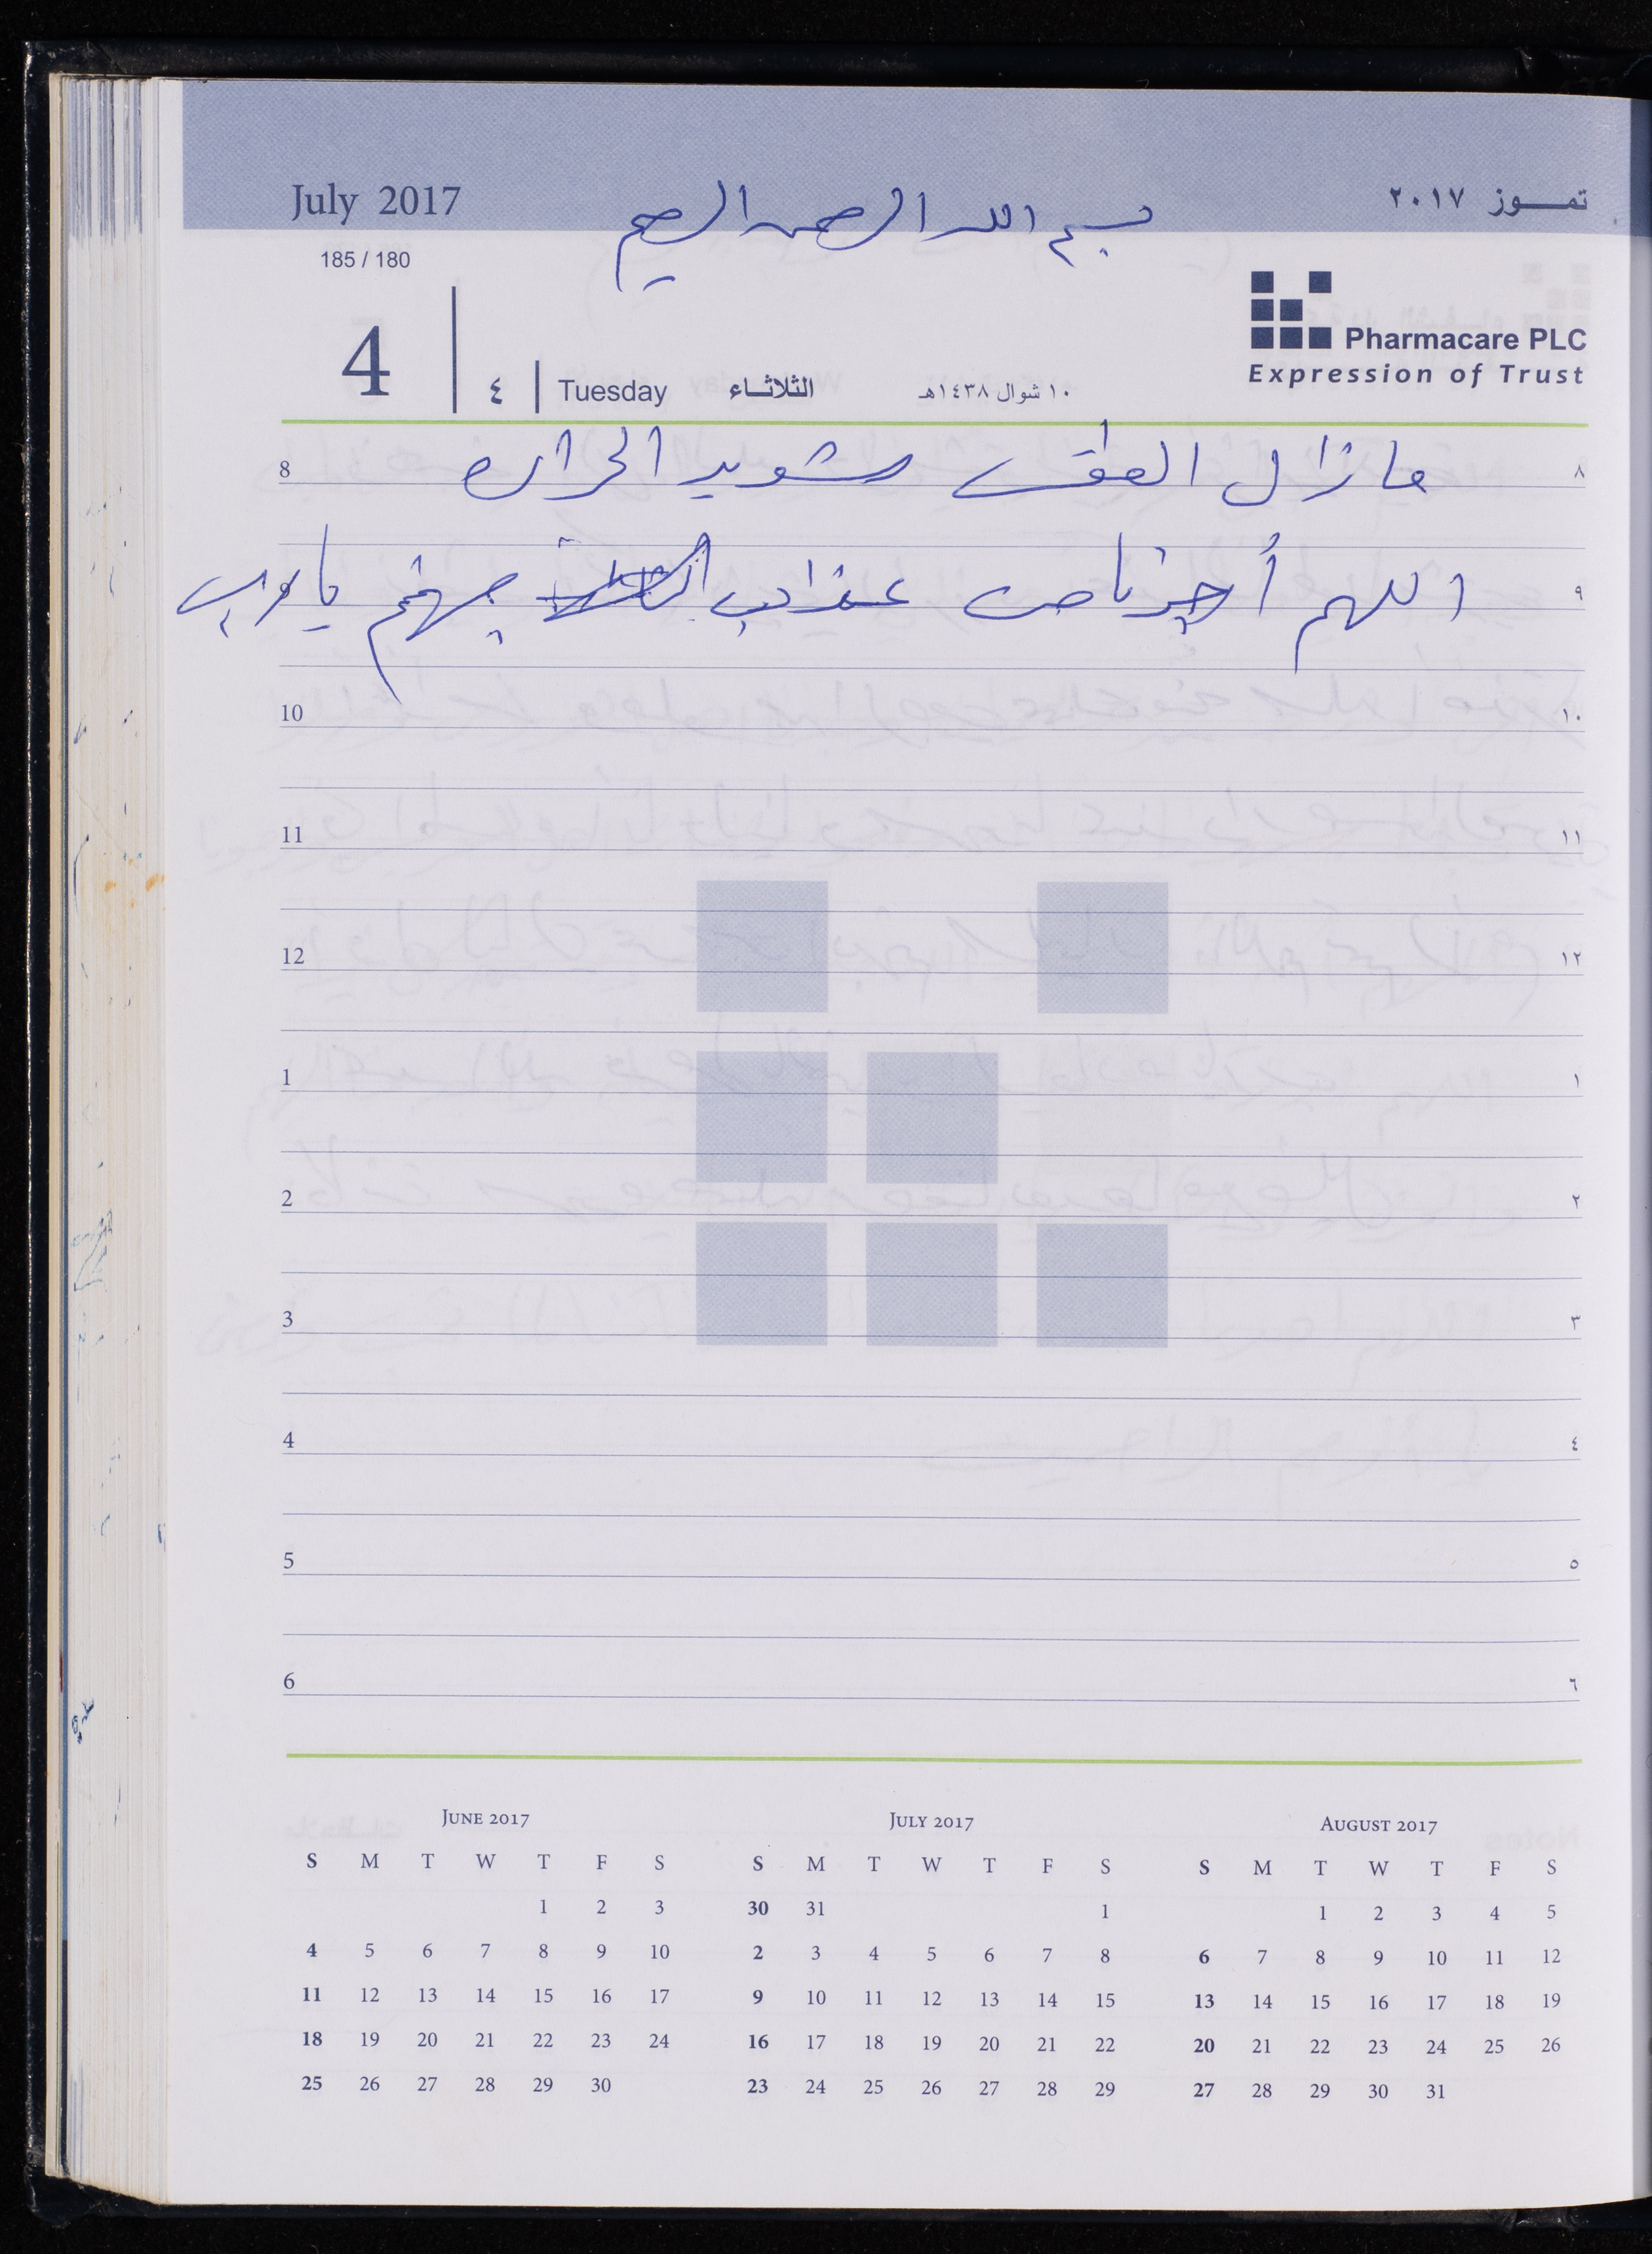 July 2017
تمـــوز ٢٠١٧
بسم الله الرحمن الرحيم
185 / 180
Pharmacare PLC
Expression of Trust
4
٤
Tuesday
الثلاثـاء
١٠ شوال ١٤٣٨هـ
8 مازال الطقس شديد الحراره ٨
9 اللهم أجرنا من عذاب جهنم يا رب ٩
10 ١٠
11 ١١
12 ١٢
1 ١
2 ٢
3 ٣
4 ٤
5 ٥
6 ٦
JUNE 2017
S M T W T F S
1 2 3
4 5 6 7 8 9 10
11 12 13 14 15 16 17
18 19 20 21 22 23 24
25 26 27 28 29 30
JULY 2017
S M T W T F S
30 31 1
2 3 4 5 6 7 8
9 10 11 12 13 14 15
16 17 18 19 20 21 22
23 24 25 26 27 28 29
AUGUST 2017
S M T W T F S
1 2 3 4 5
6 7 8 9 10 11 12
13 14 15 16 17 18 19
20 21 22 23 24 25 26
27 28 29 30 31